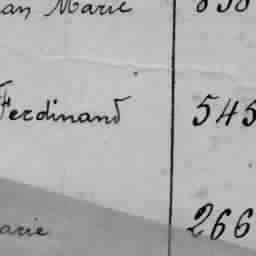 an Marie 838
Ferdinand 545
arie 266